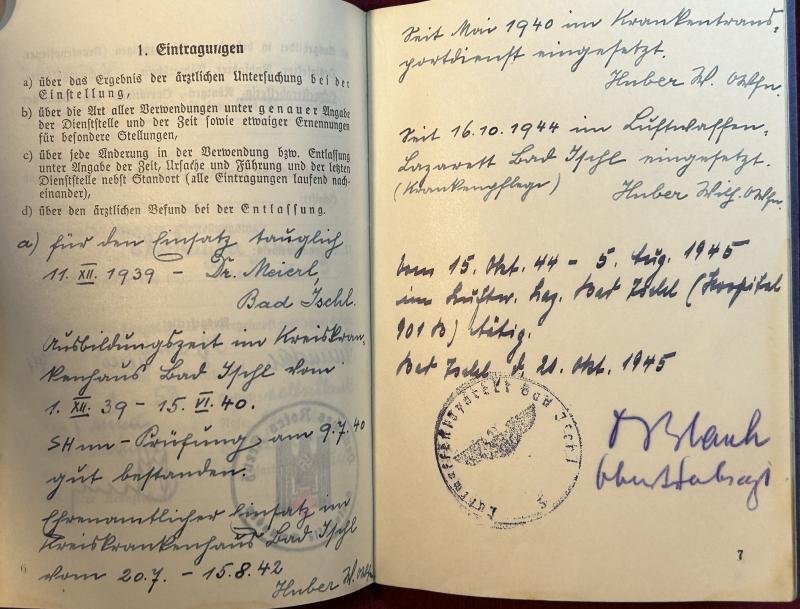 1. Eintragungen
a) über das Ergebnis der ärztlichen Untersuchung bei der
Einstellung,
b) über die Art aller Verwendungen unter genauer Angabe
der Dienststelle und der Zeit sowie etwaiger Ernennungen
für besondere Stellungen,
c) über jede Änderung in der Verwendung bzw. Entlassung
unter Angabe der Zeit, Ursache und Führung und der letzten
Dienststelle nebst Standort (alle Eintragungen laufend nach-
einander),
d) über den ärztlichen Befund bei der Entlassung.
a) für den Einsatz tauglich
11. XII. 1939 – Dr. Meierl,
Bad Ischl.
Ausbildungszeit im Kreiskran-
kenhaus Bad Ischl vom
1. XII. 39 – 15. VI. 40.
SHinn-Prüfung am 9.7.40
gut bestanden.
Ehrenamtlicher Einsatz im
Kreiskrankenhaus Bad Ischl
vom 20.7. – 15.8.42
Huber W.
6
Seit Mai 1940 im Krankentrans-
portdienst eingesetzt.
Huber W. OWfn.
Seit 16.10.1944 im Luftwaffen-
Lazarett Bad Ischl eingesetzt.
(Krankenpflege) Huber Wilh. OWfn.
Vom 15. Okt. 44 – 5. Aug. 1945
im Luftw. Laz. Bad Ischl (Hospital
901 B) tätig.
Bad Ischl d. 20. Okt. 1945
Luftwaffenlazarett Bad Ischl
Oberstabsarzt
7